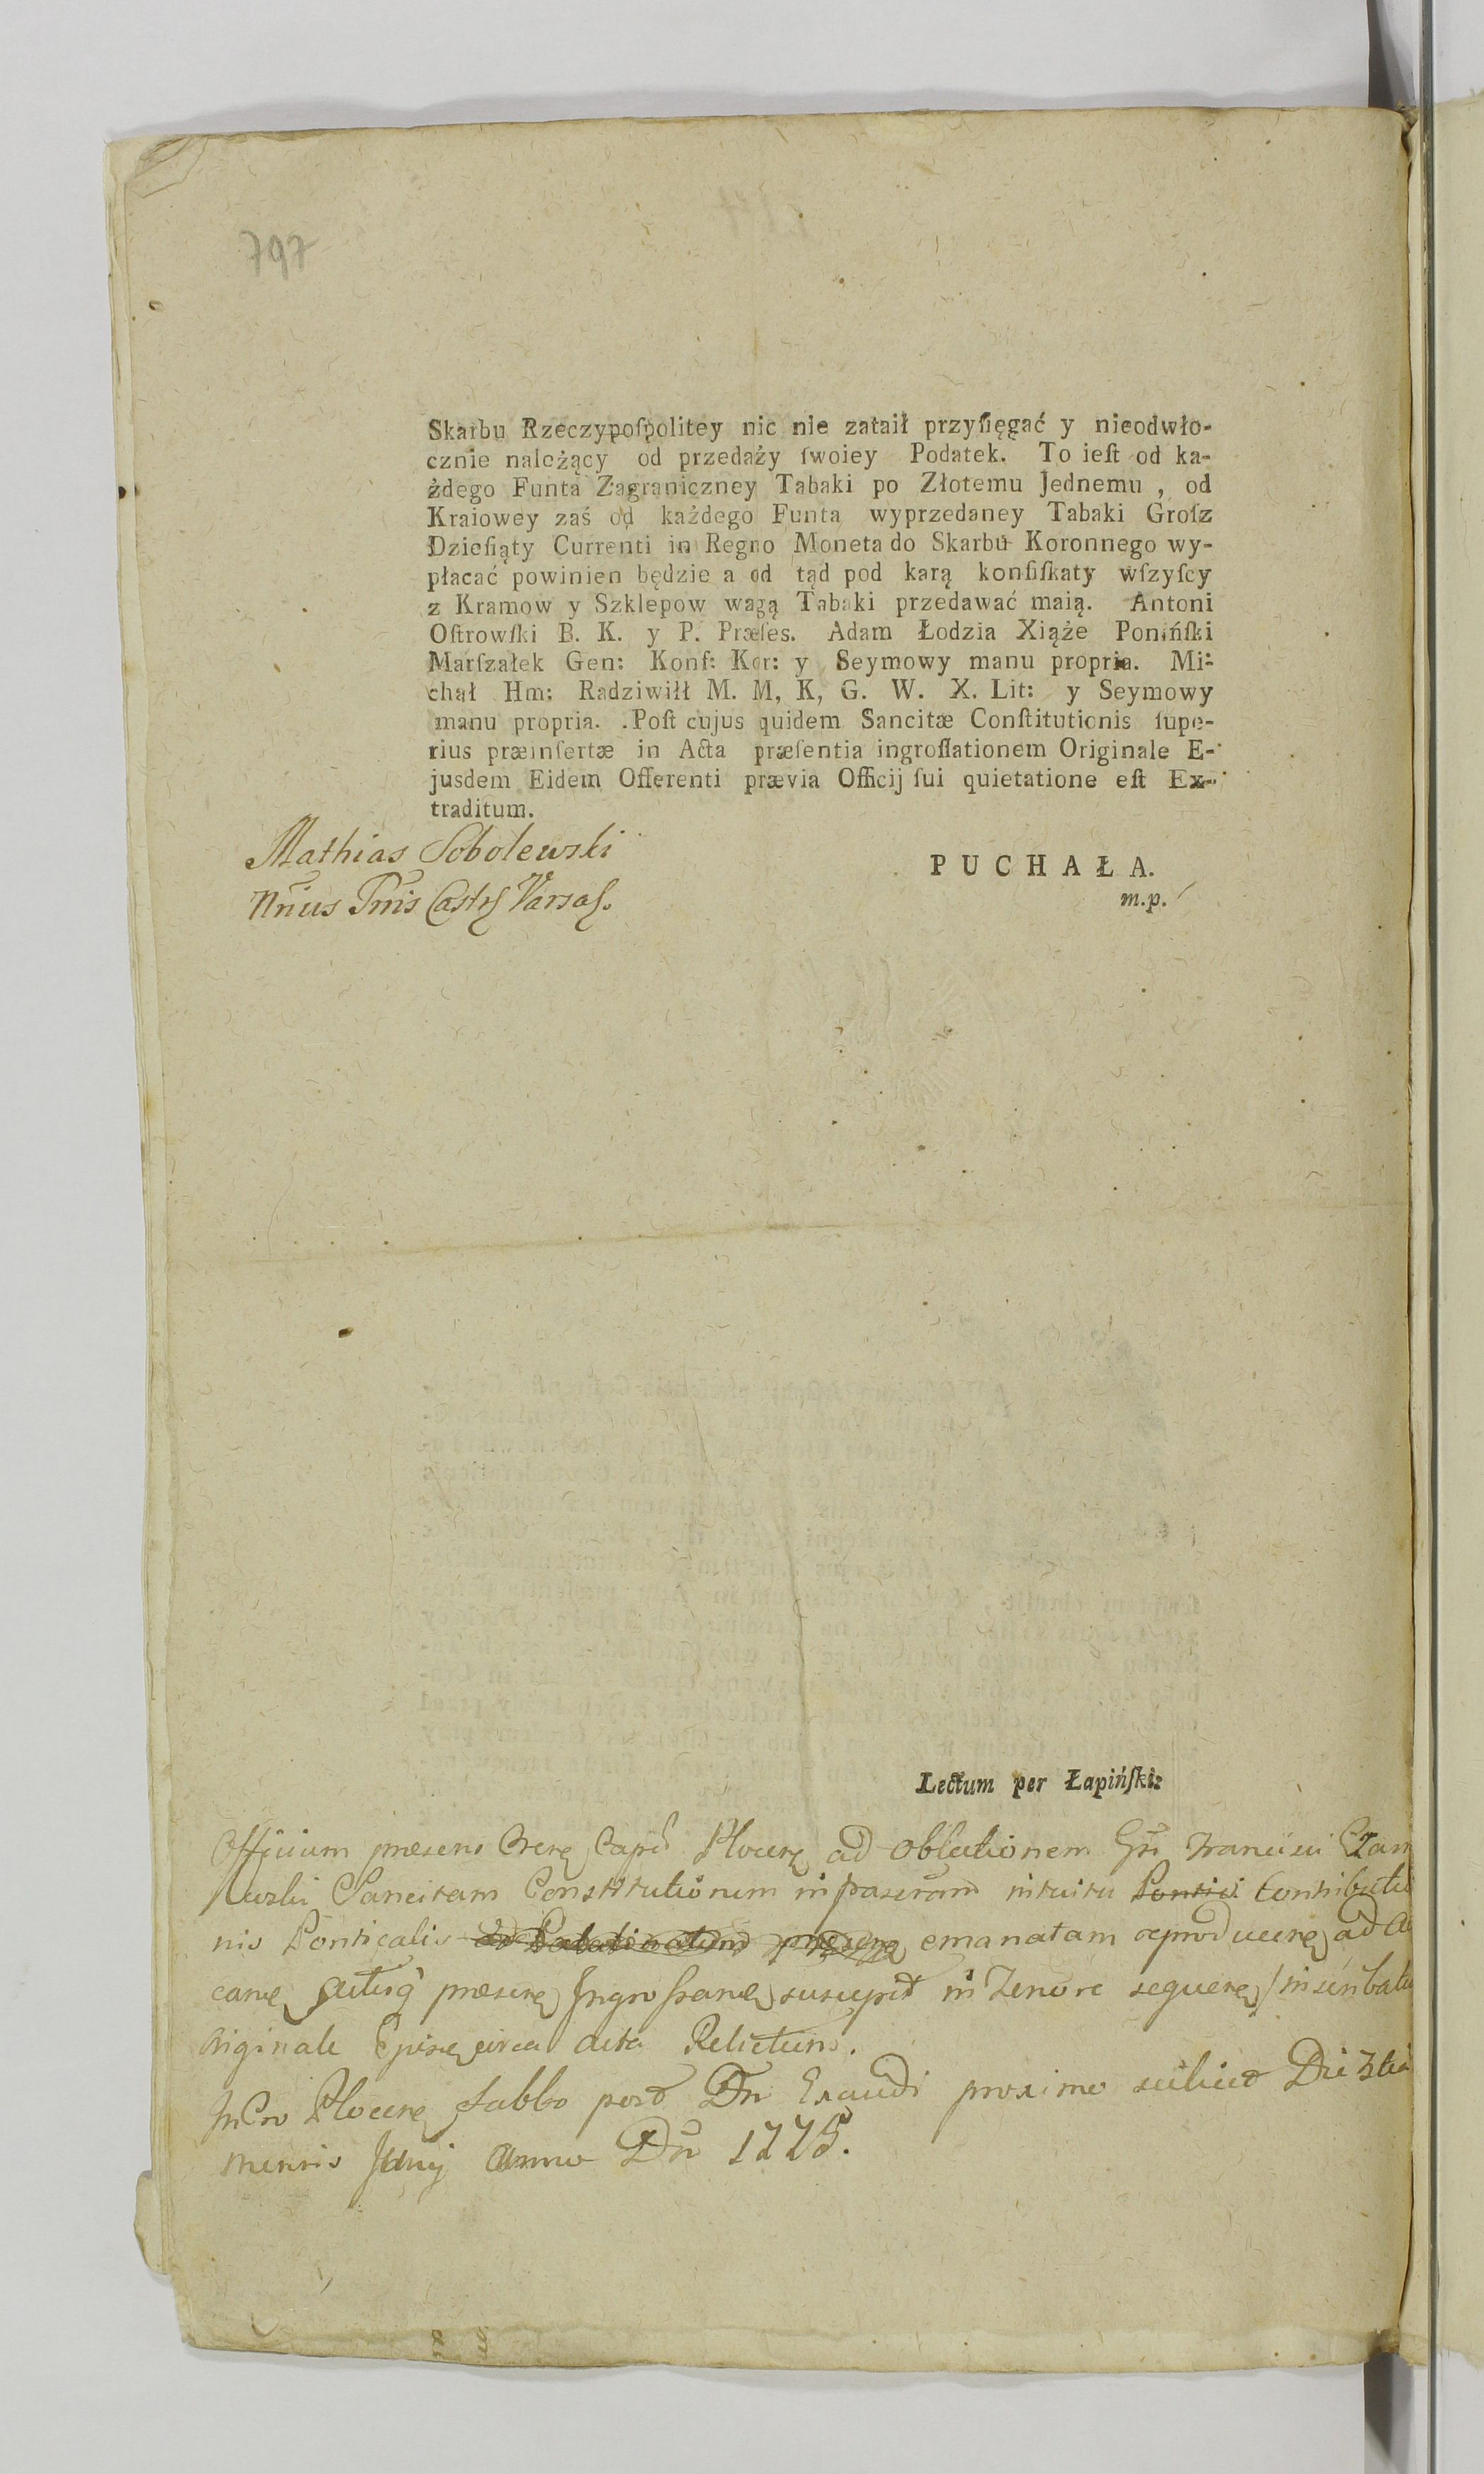 797
Skarbu Rzeczypoſpolitey nic nie zataił przyſięgać y nieodwło-
cznie należący od przedaży ſwoiey Podatek. To ieſt od ka-
żdego Funta Zagraniczney Tabaki po Złotemu Jednemu , od
Kraiowey zaś od każdego Funta wyprzedaney Tabaki Groſz
Dzieſiąty Currenti in Regno Moneta do Skarbu Koronnego wy-
płacać powinien będzie a od tąd pod karą konfiſkaty wſzyſcy
z Kramow y Szklepow wagą Tabaki przedawać maią. Antoni
Oſtrowſki B. K. y P. Præſes. Adam Łodzia Xiąże Ponińſki
Marſzałek Gen: Konf: Kor: y Seymowy manu propria. Mi-
chał Hm: Radziwiłł M. M, K, G. W. X. Lit: y Seymowy
manu propria. .Poſt cujus quidem Sancitæ Conſtitutionis ſupe-
rius præinſertæ in Acta præſentia ingroſſationem Originale E-
jusdem Eidem Offerenti prævia Officij ſui quietatione eſt Ex-
traditum.
Mathias Sobolewski
PUCHAŁA.
m.p.
Lectum per Łapińſki:
Officium præsens ad oblationem
Constitutionum intuitu
emanatam ad
præsen suscepit in Tenore
Originale circa acta Relictum.
Sabbo post Dn Exaudi proximo scilicet Die 3tia
mensis Junij Anno Dn 1775.